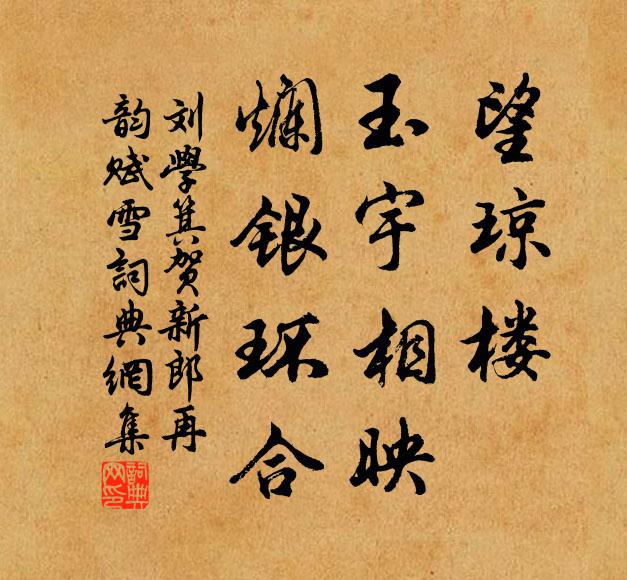 望琼楼
玉宇相映
烂银环合
刘學箕贺新郎再
韵赋雪詞典網集
詞典网印